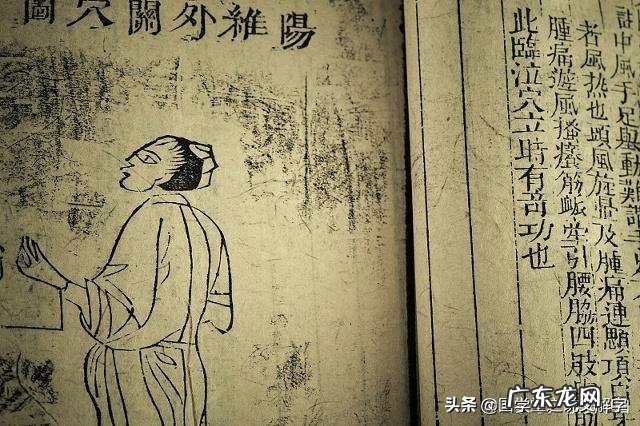 註中風手足舉動難
者風热也頭風旋暈及腫痛連顋項目
腫痛遊風搔癢筋牽引腰脇四肢
此臨泣穴立時有竒功也
陽維外關穴圖
广东龙网
头条 @国学说文解字